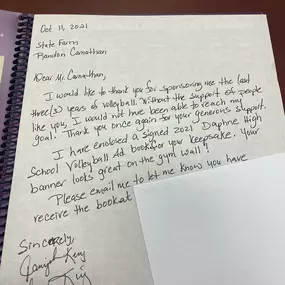 Oct 11, 2021
State Farm
Brandon Carnathan
Dear Mr. Carnathan,
I would like to thank you for sponsoring me the last
three (3) years of volleyball. Without the support of people
like you, I would not have been able to reach my
goal. Thank you once again for your generous support.
I have enclosed a signed 2021 Daphne High
School Volleyball Ad book for your keepsake. Your
banner looks great on the gym wall!
Please email me to let me know you have
receive the book at
Sincerely,
King
King